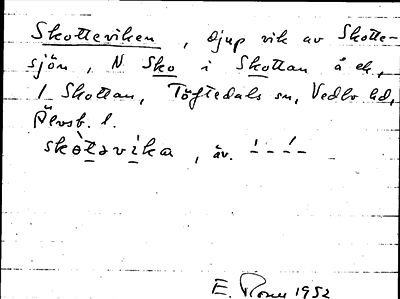 Skotteviken, djup vik av Skotte-
sjön, N Sko i Skottan å ek.,
1 Skottan, Töftedals sn, Vedbo hd,
Älvsb. l.
skòtəvika, äv.
E. 1952